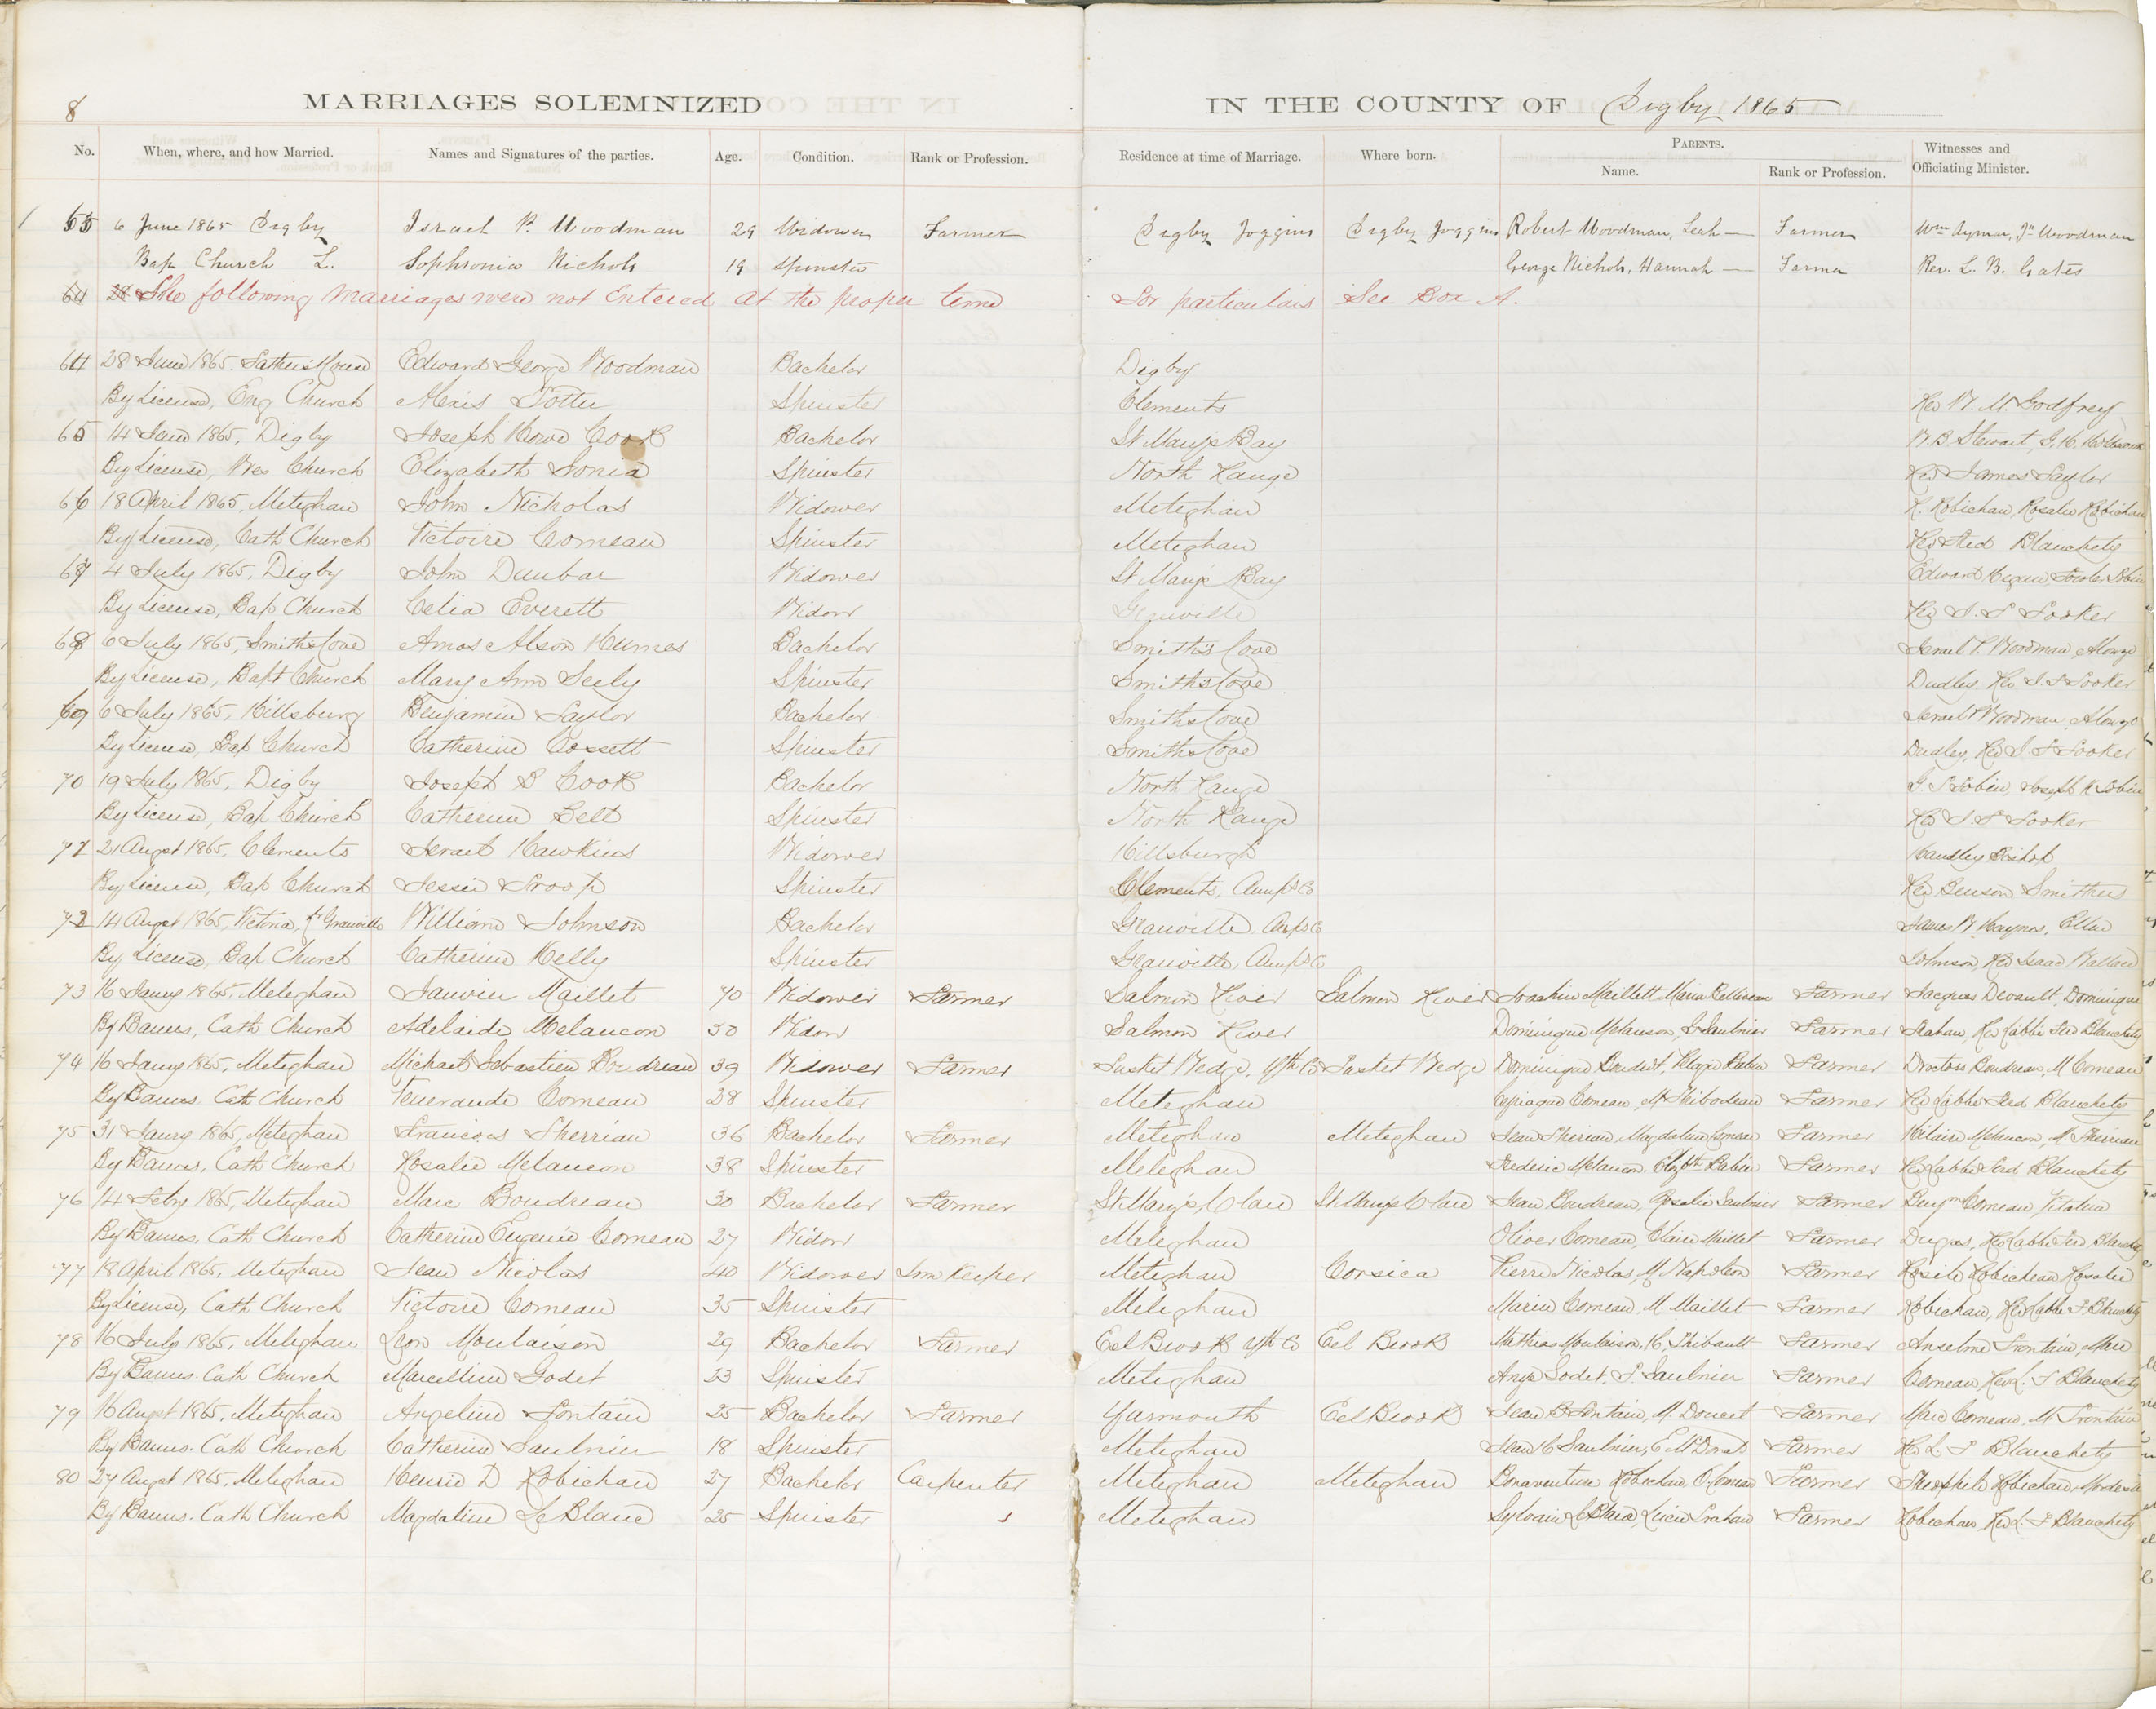 8 MARRIAGES SOLEMNIZED IN THE COUNTY OF Digby 1865
No. When, where, and how Married. Names and Signatures of the parties. Age. Condition. Rank or Profession. Residence at time of Marriage. Where born. PARENTS. Name. Rank or Profession. Witnesses and Officiating Minister.
6 June 1865 Digby Israel P. Woodman 29 Widower Farmer Digby Joggins Digby Joggins Robert Woodman, Leah — Farmer Wm Aymar, Jn Woodman
Bap Church L. Sophronia Nichols 19 Spinster George Nichols, Hannah — Farmer Rev. L. B. Gates
64 28 The following marriages were not Entered at the proper time For particulars See Box A.
64 28 June 1865. Fathers House Edward George Woodman Bachelor Digby
By License, Eng Church Potter Spinster Clements Rev W. M. Godfrey
65 14 June 1865, Digby Joseph Howe Cook Bachelor St Mary's Bay W. B. Stewart,
By License, Wes Church Elizabeth Spinster North Range Rev James Taylor
66 18 April 1865, Meteghan John Nicholas Widower Meteghan H. Robichau, Rosalie Robichau
By License, Cath Church Victoire Comeau Spinster Meteghan Rev Fred Blanchety
67 4 July 1865, Digby John Dunbar Widower St Mary's Bay Edward
By License, Bap Church Celia Everett Widow Granville Rev J. S Tooker
68 6 July 1865, Smiths Cove Amos Alson Humes Bachelor Smith's Cove Israel P. Woodman, Alonzo
By License, Bapt Church Mary Ann Seely Spinster Smiths Cove Dudley, Rev J. S Tooker
69 6 July 1865, Hillsburg Benjamin Taylor Bachelor Smiths Cove Israel P Woodman, Alonzo
By License, Bap Church Catherine Cossett Spinster Smiths Cove Dudley, Rev J S Tooker
70 19 July 1865, Digby Joseph S Cook Bachelor North Range Joseph
By License, Bap Church Catherine Bell Spinster North Range Rev J S Tooker
71 21 Augst 1865, Clements Israel Hawkins Widower Hillsburgh Handley Bishop
By License, Bap Church Jessie Troop Spinster Clements, Annps Co Rev Benson Smithers
72 14 Augst 1865, Victoria, Granville William Johnson Bachelor Granville Anps Co James W. Haynes, Ellen
By License, Bap Church Catherine Kelly Spinster Granville, Annps Co Johnson, Rev Isaac Wallace
73 16 Janry 1865, Meteghan Janvier Maillet 70 Widower Farmer Salmon River Salmon River Joachim Maillett, Maria Belliveau Farmer Jacques Devault, Dominique
By Banns, Cath Church Adelaide Melancon 50 Widow Salmon River Dominique Melanson, Saulnier Farmer Trahan, Rev Labbe Fred Blanchety
74 16 Janry 1865, Meteghan Michael Sebastien Boudreau 39 Widower Farmer Tusket Wedge, Yth Co Tusket Wedge Dominique Farmer Boudreau, M Comeau
By Banns. Cath Church Venerande Comeau 28 Spinster Meteghan Comeau, M Thibodeau Farmer Rev Labbe Fred Blanchety
75 31 Janry 1865, Meteghan Francois Therrian 36 Bachelor Farmer Meteghan Meteghan Jean Therriau Magdaline Comeau Farmer Hilaire Melancon, M. Therriau
By Banns, Cath Church Rosalie Melancon 38 Spinster Meteghan Frederic Melancon Elizbth Babin Farmer Rev Labbe Fred Blanchety
76 14 Febry 1865, Meteghan Marc Boudreau 30 Bachelor Farmer St. Mary's, Clare St. Mary's Clare Jean Boudreau, Rosalie Saulnier Farmer Benjn Comeau Vitaline
By Banns, Cath Church Catherine Eugenie Comeau 27 Widow Meteghan Oliver Comeau, Claire Maillet Farmer Dugas, Rev Labbe Fred Blanchety
77 18 April 1865, Meteghan Jean Nicolas 40 Widower Inn Keeper Meteghan Corsica Pierre Nicolas, M. Napoleon Farmer Robicheau Rosalie
By License, Cath Church Victoire Comeau 35 Spinster Meteghan Marin Comeau, M Maillet Farmer Robichau, Rev Labbe F Blanchety
78 16 July 1865, Meteghan Leon Moulaison 29 Bachelor Farmer Eel Brook Yth Co Eel Brook Mathias Moulaison, C, Thibault Farmer Anselme Frontain, Marc
By Banns. Cath Church Marcelline Godet 23 Spinster Meteghan Ange Godet, F Saulnier Farmer Comeau, Rev L. F Blanchety
79 16 Augst 1865, Meteghan Angeline Fontain 25 Bachelor Farmer Yarmouth Eel Brook Jean B Fontain, M. Doucet Farmer Marc Comeau, M Frontain
By Banns. Cath Church Catherine Saulnier 18 Spinster Meteghan Jean C Saulnier, Farmer Rev L. F Blanchety
80 27 Augst 1865, Meteghan Henrie D Robichau 27 Bachelor Carpenter Meteghan Meteghan Bonaventure Robichau, O Comeau Farmer Theophile Robichau, Modeste
By Banns. Cath Church Magdaline LeBlanc 25 Spinster Meteghan Sylvain LeBlanc, Lucie Trahan Farmer Robichau, Rev L. F Blanchety